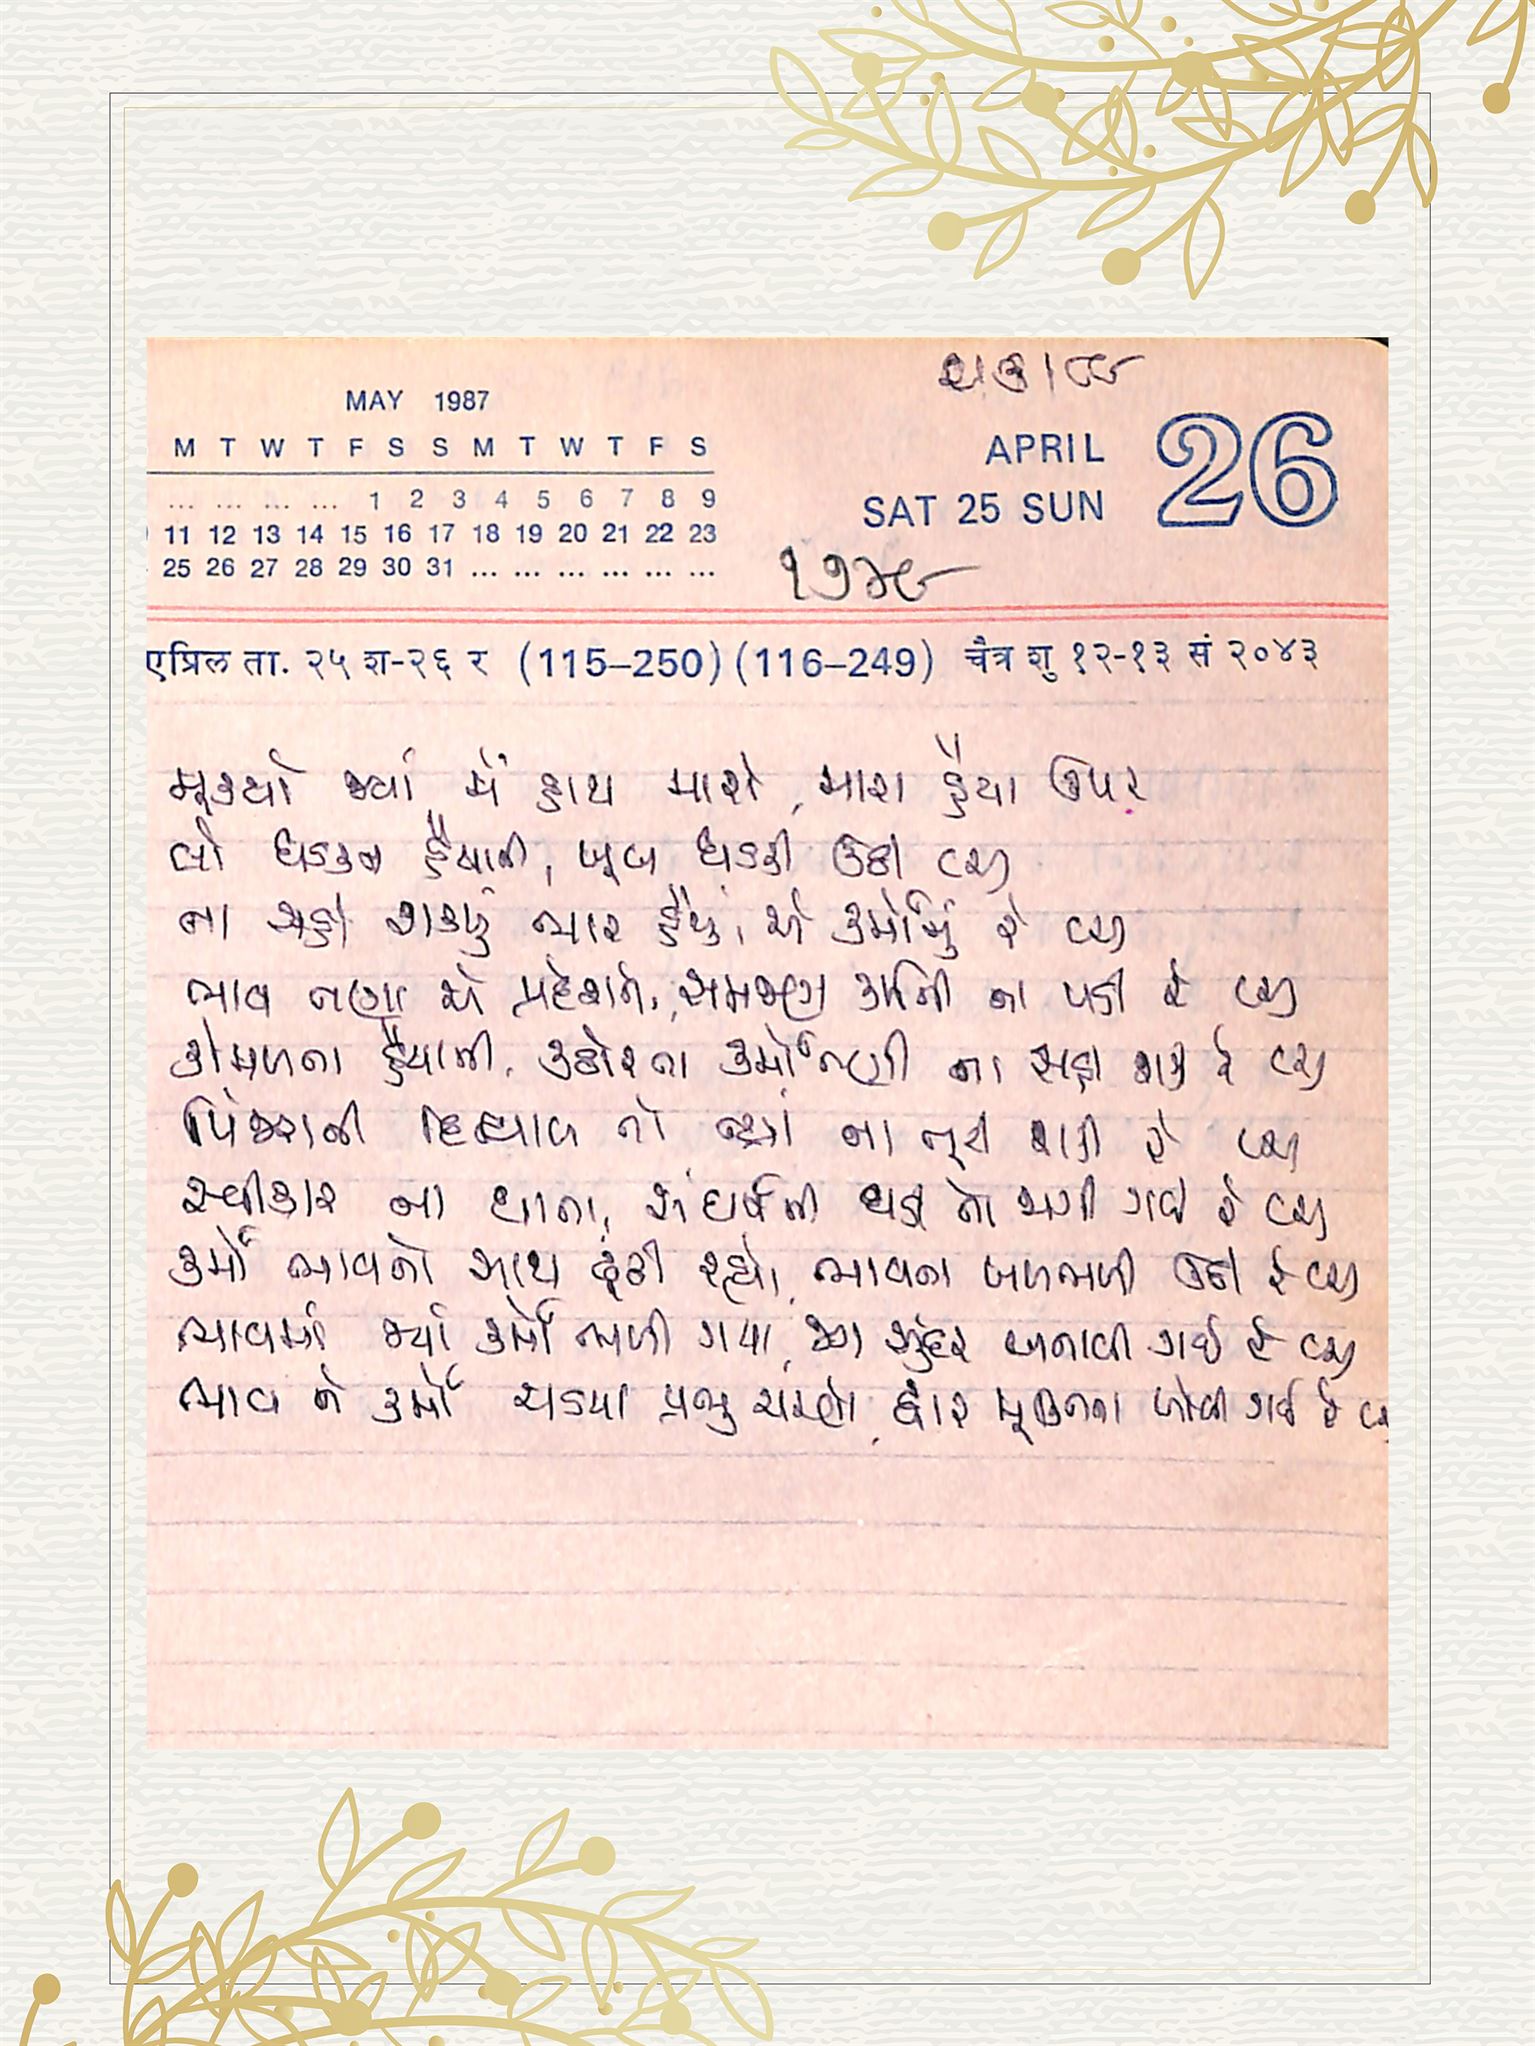 MAY 1987
M T W T F S S M T W T F S
... ... ... ... 1 2 3 4 5 6 7 8 9
11 12 13 14 15 16 17 18 19 20 21 22 23
25 26 27 28 29 30 31 ... ... ... ... ... ...
APRIL
SAT 25 SUN
26
एप्रिल ता. २५ श-२६ र (115–250) (116–249) चैत्र शु १२-१३ सं २०४३
મૂક્યો જ્યાં મેં હાથ મારો, મારા હૈયા ઉપર
તો ધડકન હૈયાની, ખૂબ ધડકી ઉઠી
ના સહી શક્યું ભાર હૈયું, એ કર્મોનું રે
ભાવ તણા એ પ્રદેશને, સમજણ કર્મની ના પડી રે
કોમળતા હૈયાની, કઠોરતા કર્મો તણી ના સહી શકી રે
દિવાલ તો ત્યાં ના તૂટી શકી રે
સ્વીકાર ના થાતા, સંઘર્ષની થડી તો જાગી ગઈ રે
કર્મો ભાવનો સાથ ઢૂંઢી રહ્યો, ભાવના ખળભળી ઉઠી રે
ભાવમાં જ્યાં કર્મો ભળી ગયા, જગ સુંદર બનાવી ગઈ રે
ભાવ ને કર્મો ચડયા પ્રભુ ચરણે, દ્વાર મૂક્તિના ખોલી ગઈ રે